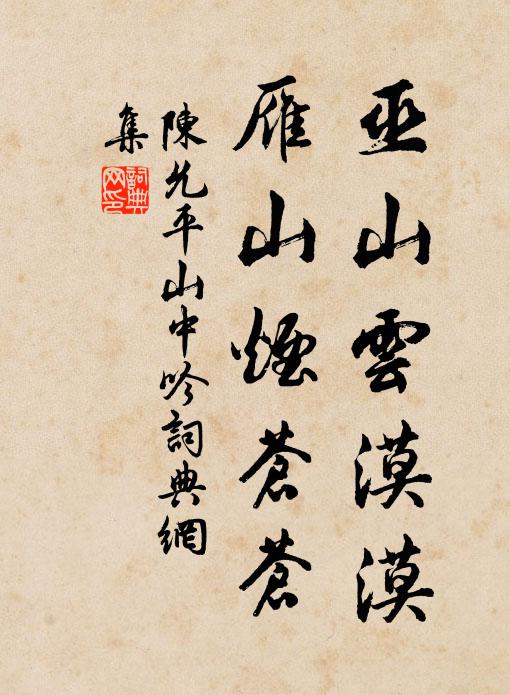 巫山雲漠漠
雁山煙蒼蒼
陳允平山中吟詞典網
集
詞典网印